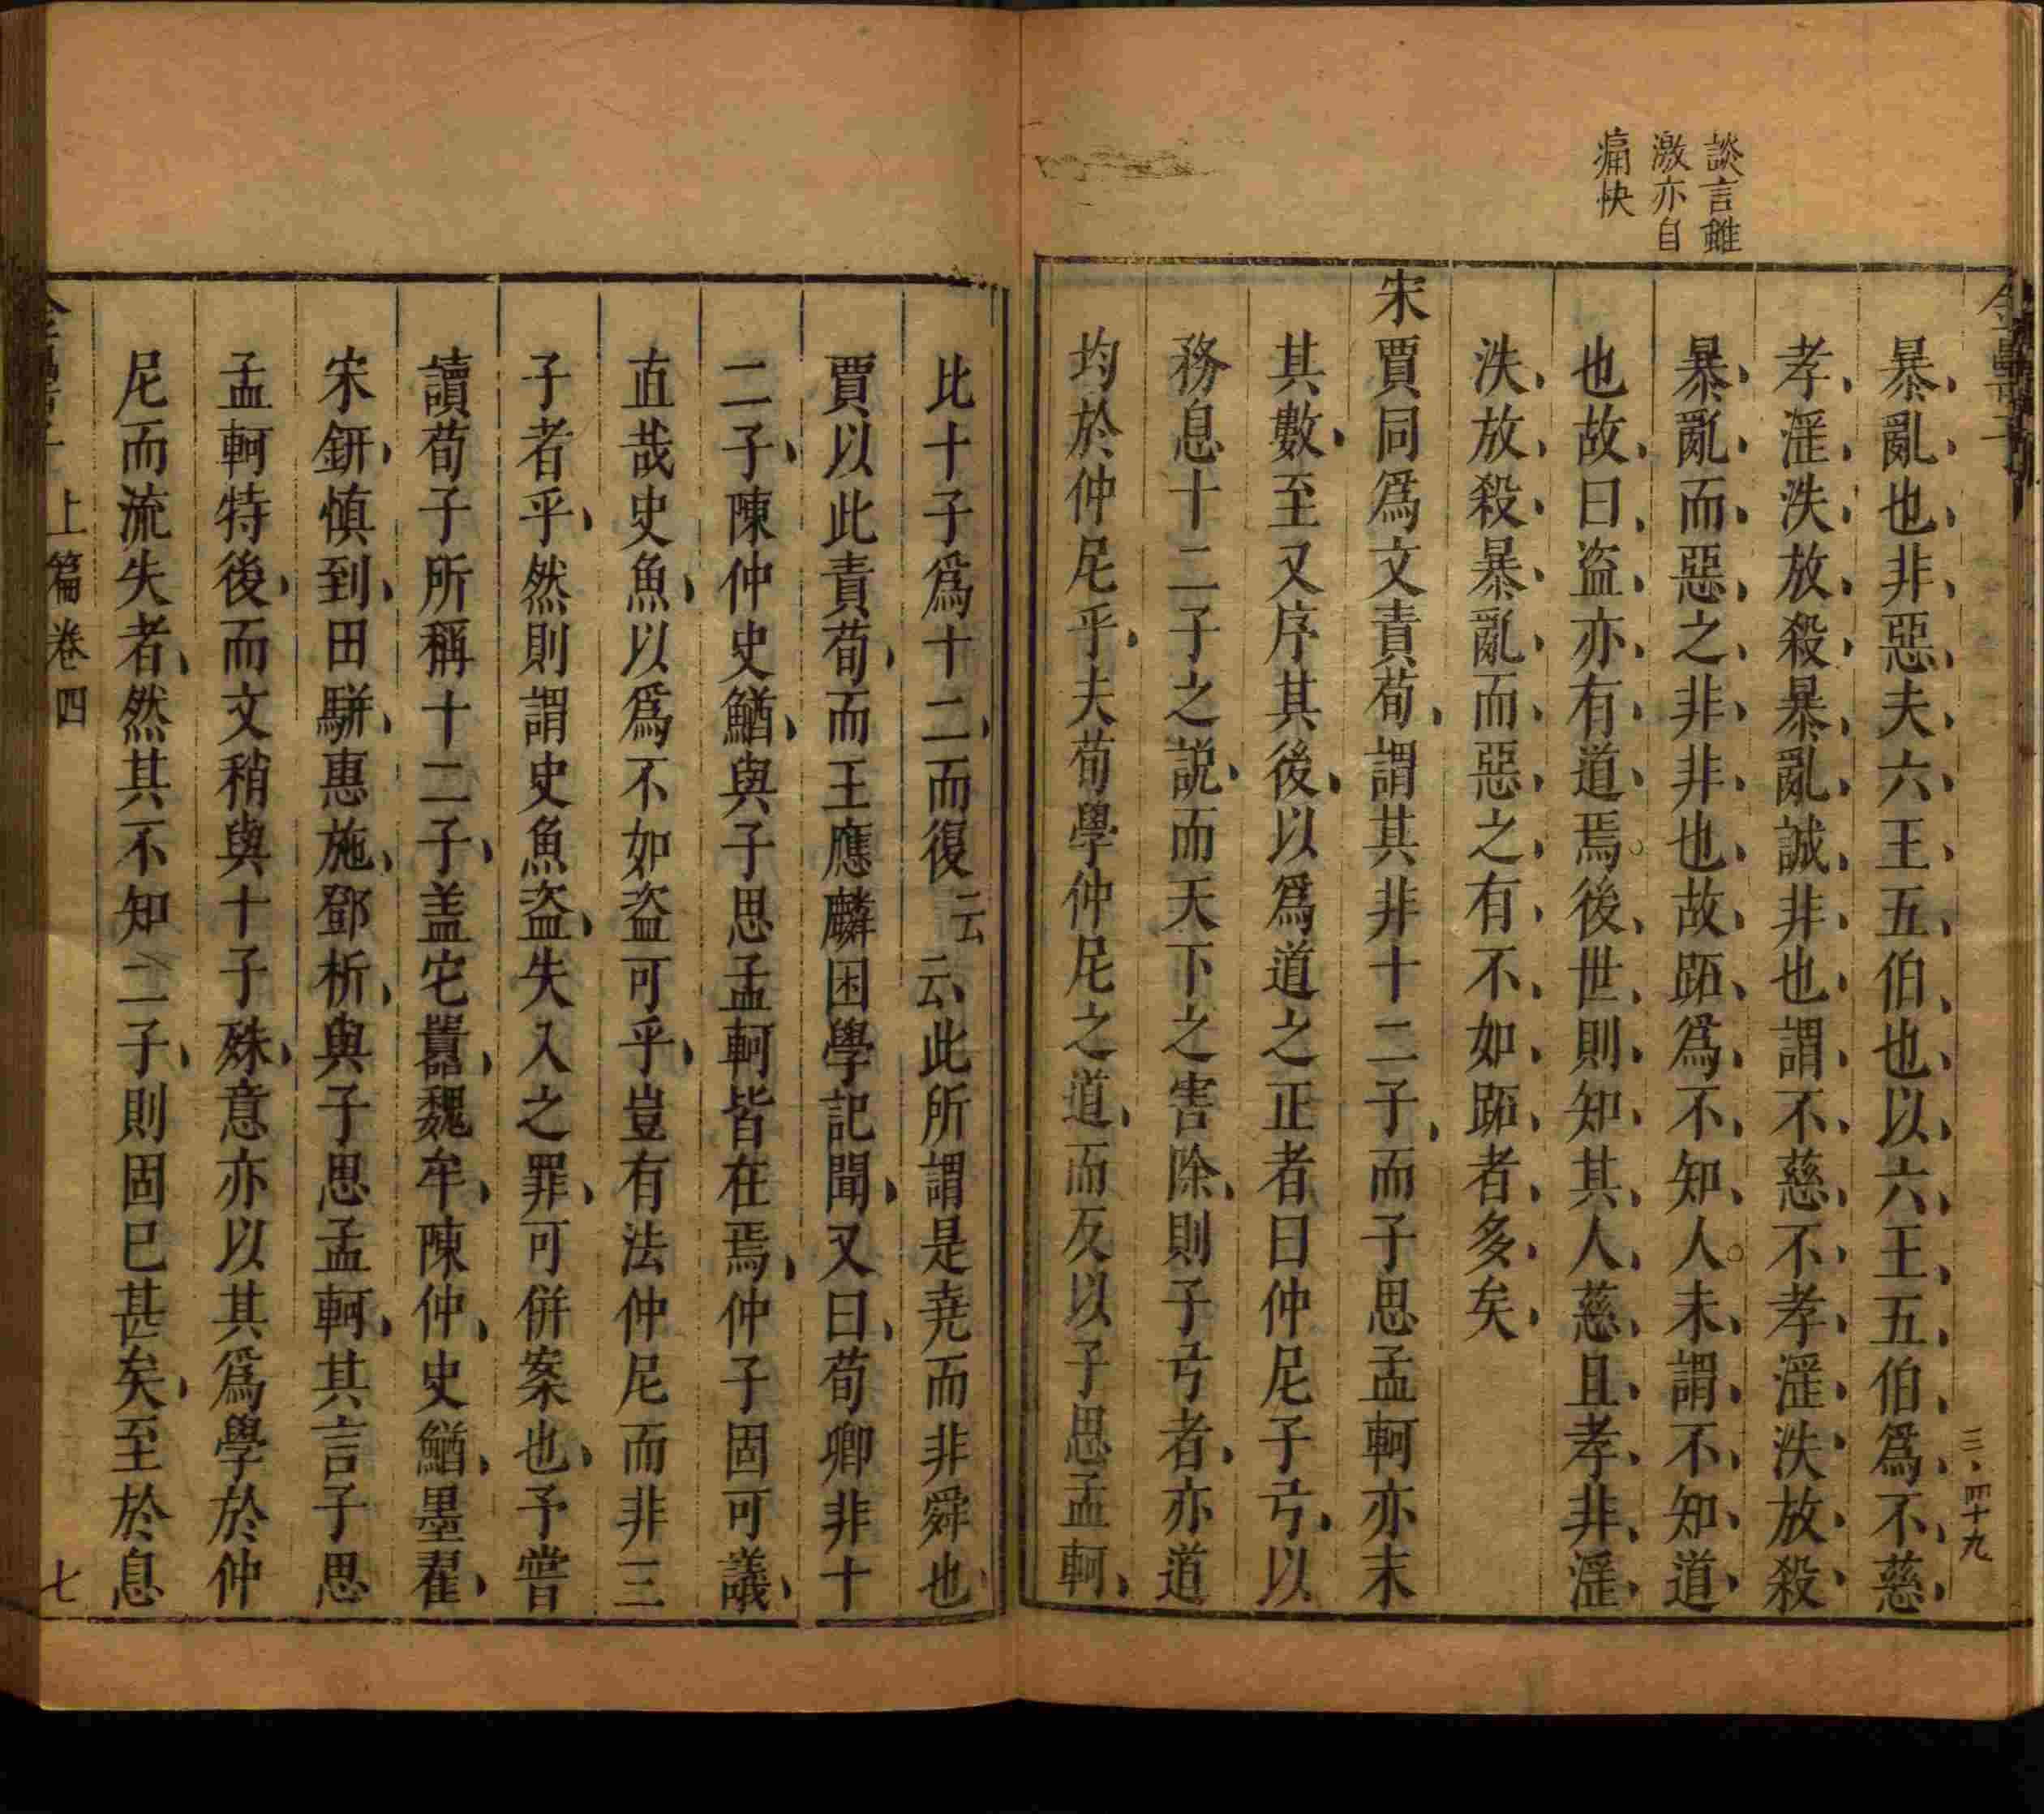 談言雖
激亦自
痛快
三、四十九
暴亂也非惡夫六王五伯也以六王五伯爲不慈
孝淫泆放殺暴亂誠非也謂不慈不孝淫泆放殺
暴亂而惡之非非也故跖爲不知人未謂不知道
也故曰盜亦有道焉後世則知其人慈且孝非淫
泆放殺暴亂而惡之有不如跖者多矣
宋賈同爲文責荀謂其非十二子而子思孟軻亦末
其數至又序其後以爲道之正者曰仲尼子弓以
務息十二子之說而天下之害除則子弓者亦道
均於仲尼乎夫荀學仲尼之道而反以子思孟軻
比十子爲十二而復云云此所謂是堯而非舜也
賈以此責荀而王應麟困學記聞又曰荀卿非十
二子陳仲史鰌與子思孟軻皆在焉仲子固可議
直哉史魚以爲不如盜可乎豈有法仲尼而非三
子者乎然則謂史魚盜失入之罪可併案也予嘗
讀荀子所稱十二子盖它嚻魏牟陳仲史鰌墨翟
宋鈃慎到田駢惠施鄧析與子思孟軻其言子思
孟軻特後而文稍與十子殊意亦以其爲學於仲
尼而流失者然其不知二子則固已甚矣至於息
上篇卷四
七